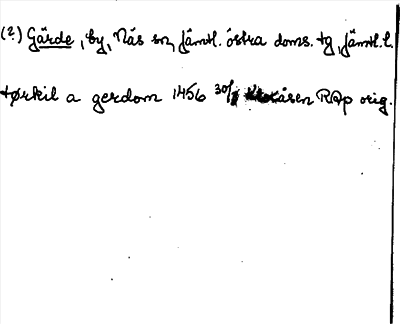 (?) Gärde, by, Näs sn, Jämtl. östra doms. tg, Jämtl. l.
tørkil a gerdom 1456 30/1 åsen RAp orig.